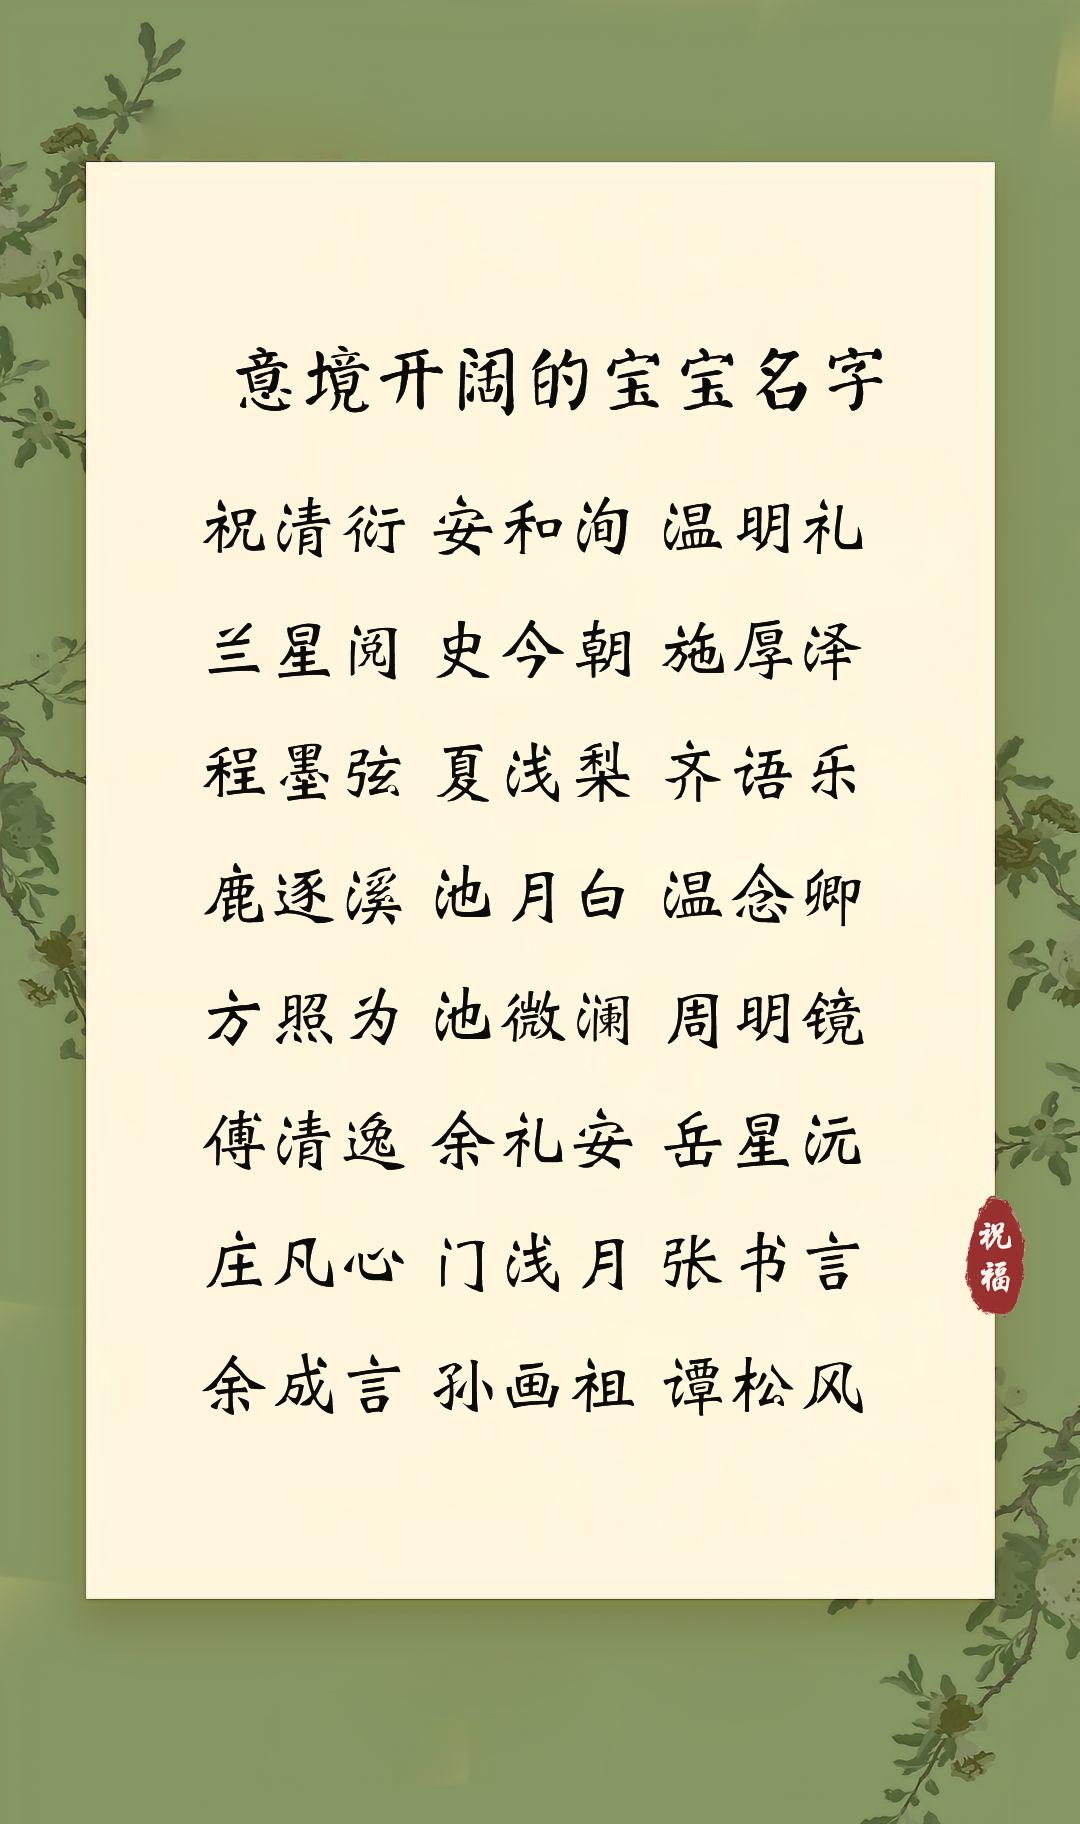 意境开阔的宝宝名字
祝清衍 安和洵 温明礼
兰星阅 史今朝 施厚泽
程墨弦 夏浅梨 齐语乐
鹿逐溪 池月白 温念卿
方照为 池微澜 周明镜
傅清逸 余礼安 岳星沅
庄凡心 门浅月 张书言
余成言 孙画祖 谭松风
祝福